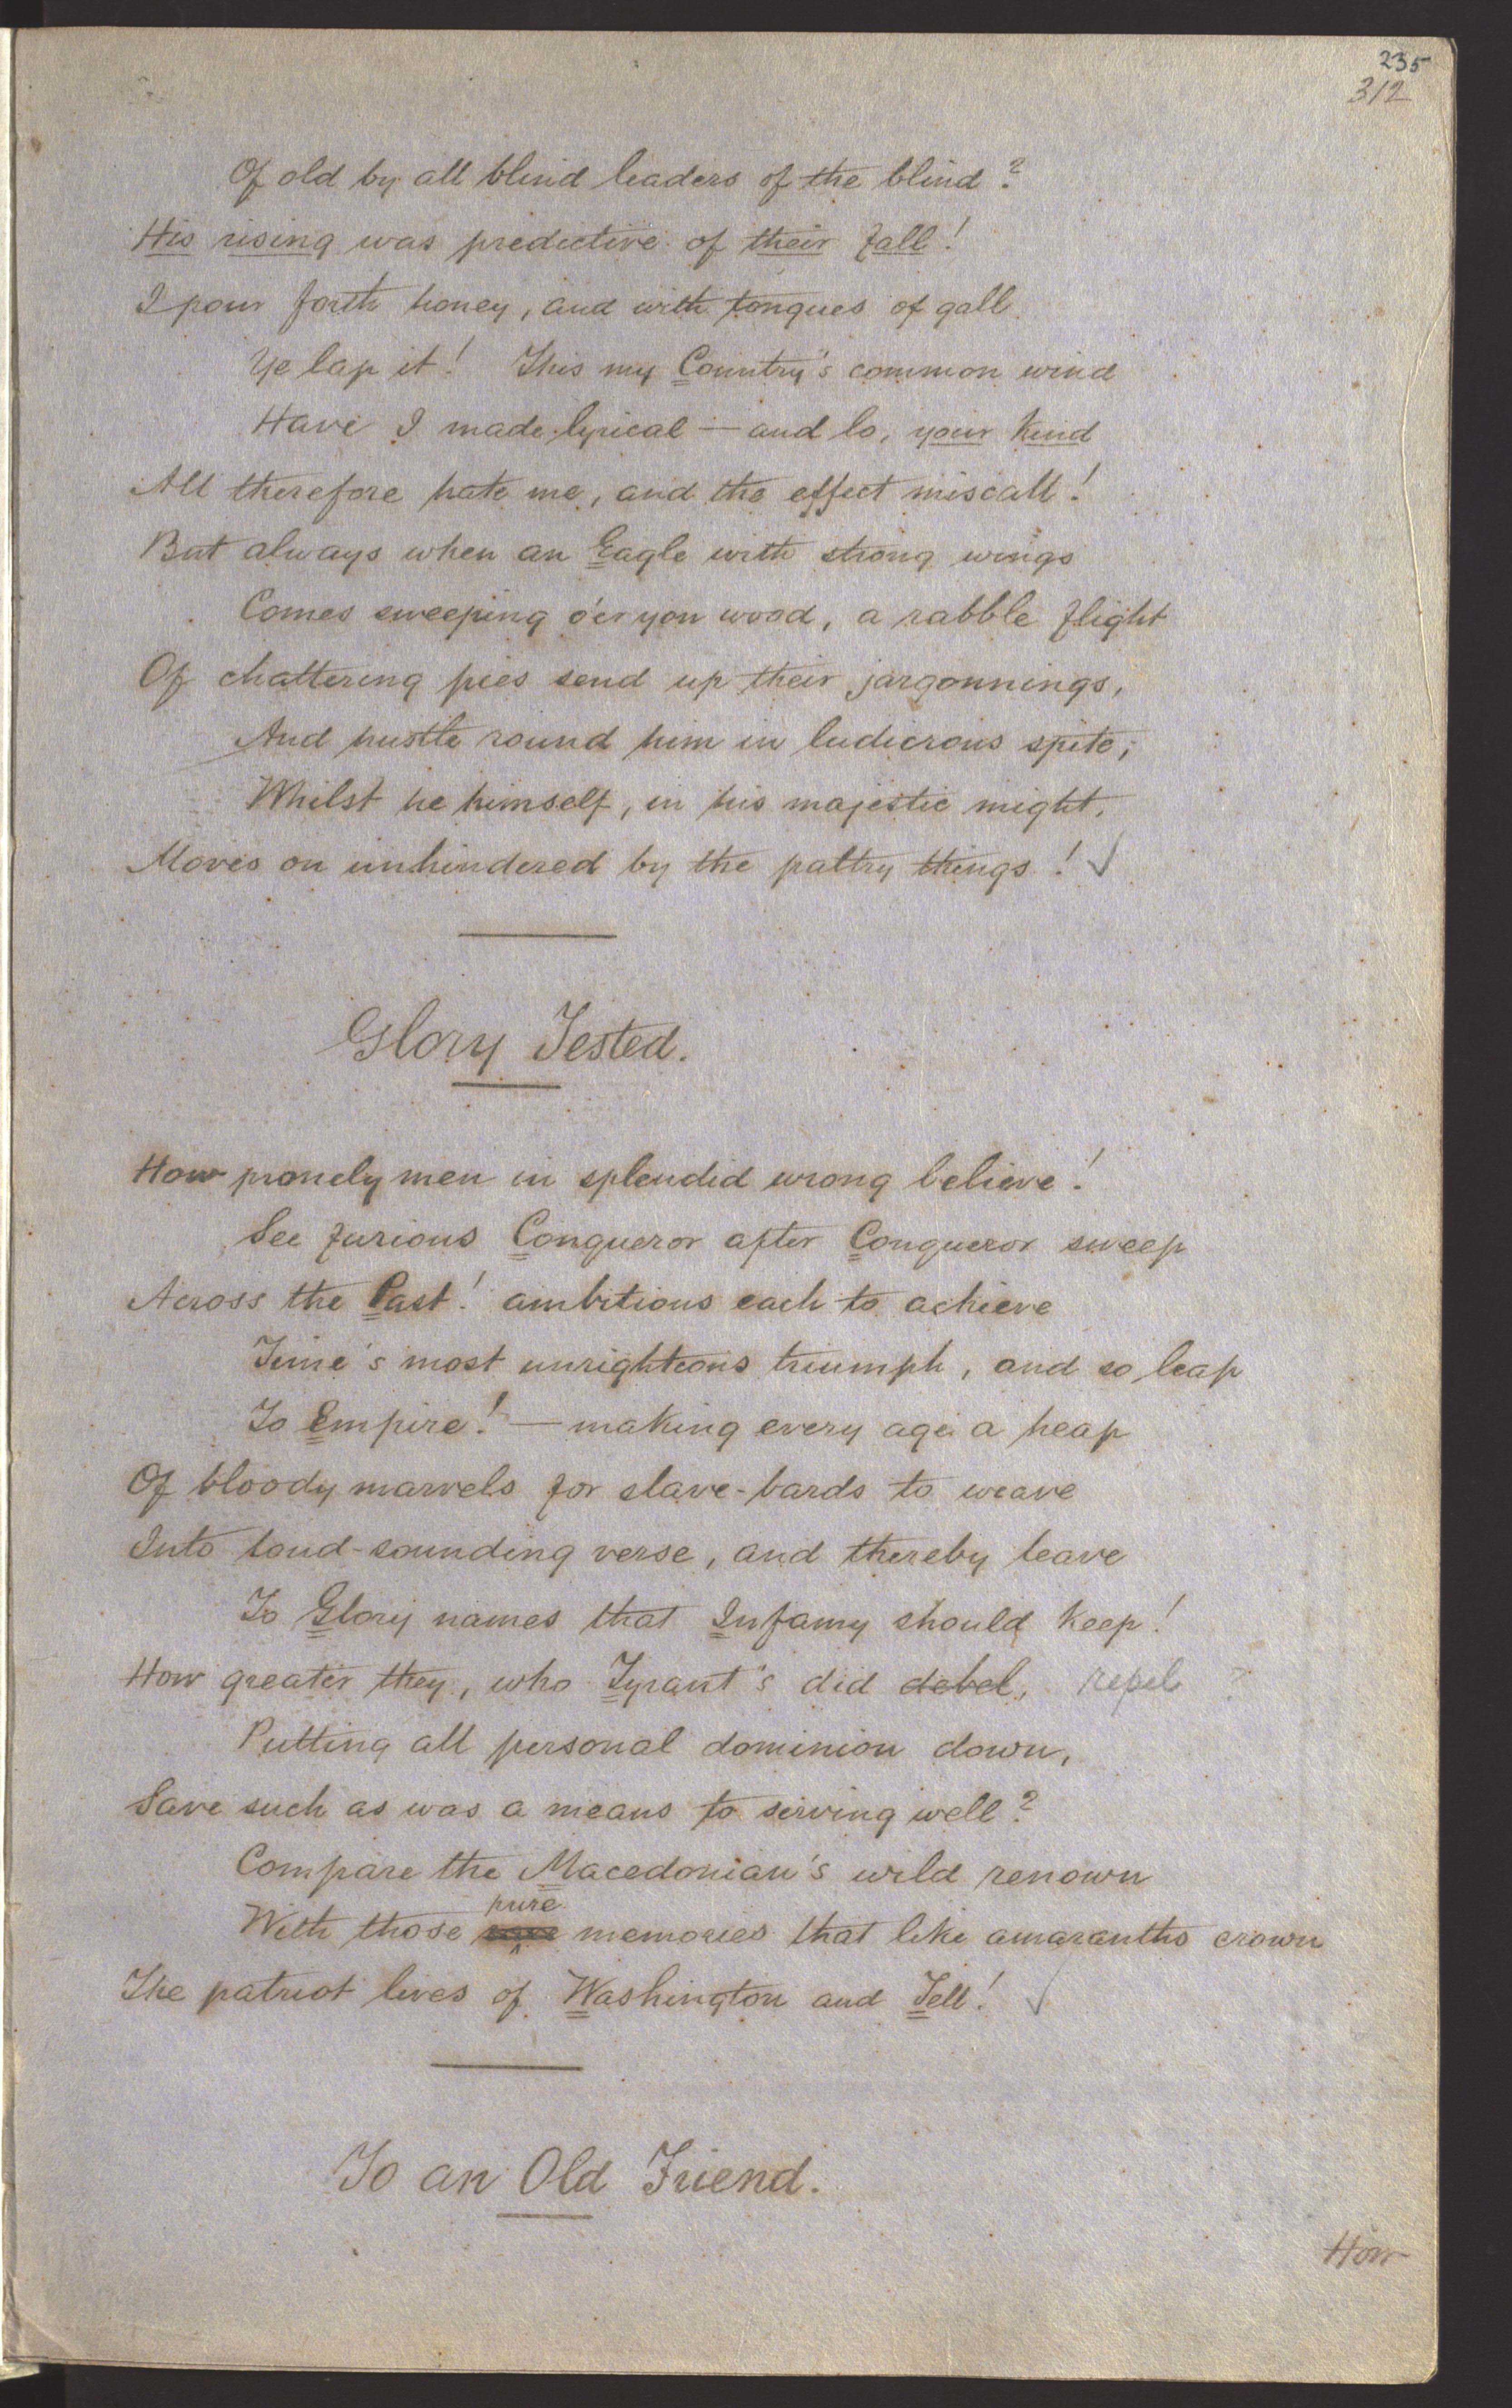 235
312
Of old by all blind leaders of the blind?
His rising was predictive of their fall!
I pour forth honey, and with tongues of gall
Ye lap it! This my Country's common wind
Have I made lyrical — and lo, your kind
All therefore hate me, and the effect miscall!
But always when an Eagle with strong wings
Comes sweeping o'er yon wood, a rabble flight
Of chattering pies send up their jargonnings,
And hustle round him in ludicrous spite;
Whilst he himself, in his majestic might,
Moves on unhindered by the paltry things! ✓
Glory Tested.
How pronely men in splendid wrong believe!
See furious Conqueror after Conqueror sweep
Across the Past! ambitious each to achieve
Time's most unrighteous triumph, and so leap
To Empire! — making every age a heap
Of bloody marvels for slave-bards to weave
Into loud-sounding verse, and thereby leave
To Glory names that Infamy should keep!
How greater they, who Tyrant's did debel, repel ?
Putting all personal dominion down,
Save such as was a means to serving well?
Compare the Macedonian's wild renown
pure
With those memories that like amaranths crown
The patriot lives of Washington and Tell! ✓
To an Old Friend.
How